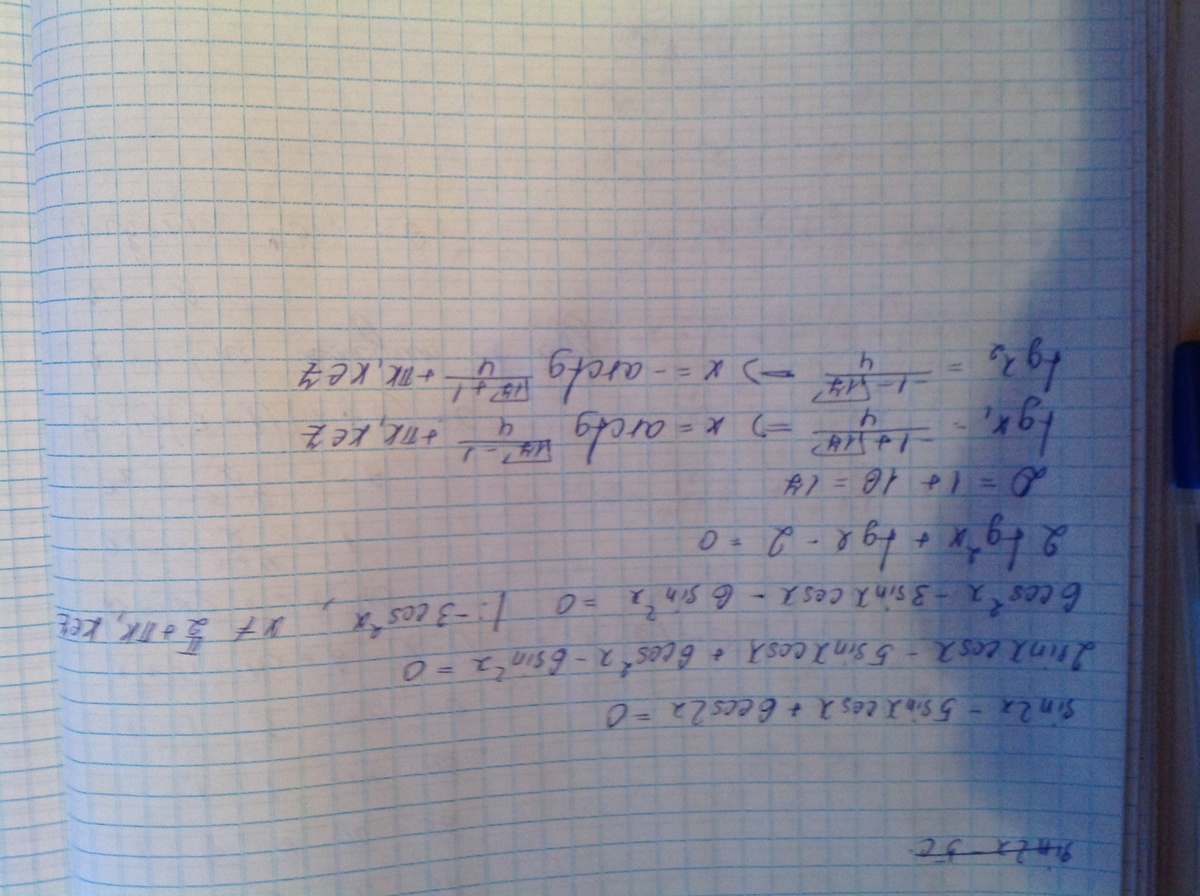 sin2x - 5c
sin2x - 5sinxcosx + 6cos2x = 0
2sinxcosx - 5sinxcosx + 6cos²x - 6sin²x = 0
6cos²x - 3sinxcosx - 6sin²x = 0 |:-3cos²x, x ≠ π/2 + πk, k∈Z
2tg²x + tgx - 2 = 0
D = 1 + 16 = 17
tgx₁ = (-1+√17)/4 => x = arctg (√17-1)/4 + πk, k∈Z
tgx₂ = (-1-√17)/4 => x = -arctg (√17+1)/4 + πk, k∈Z